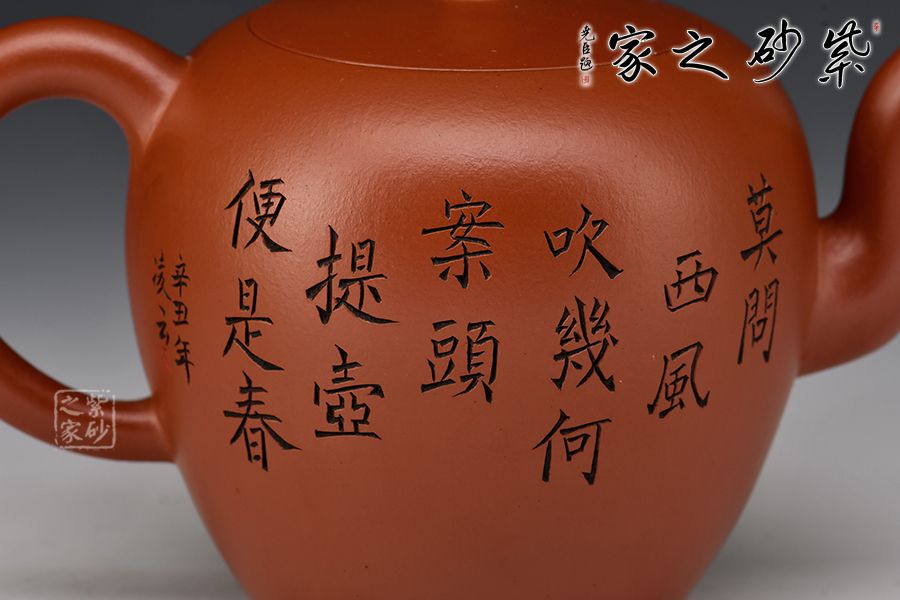 紫砂之家
堯臣題
莫問
西風
吹幾何
案頭
提壺
便是春
辛丑年
凌云
紫砂
之家